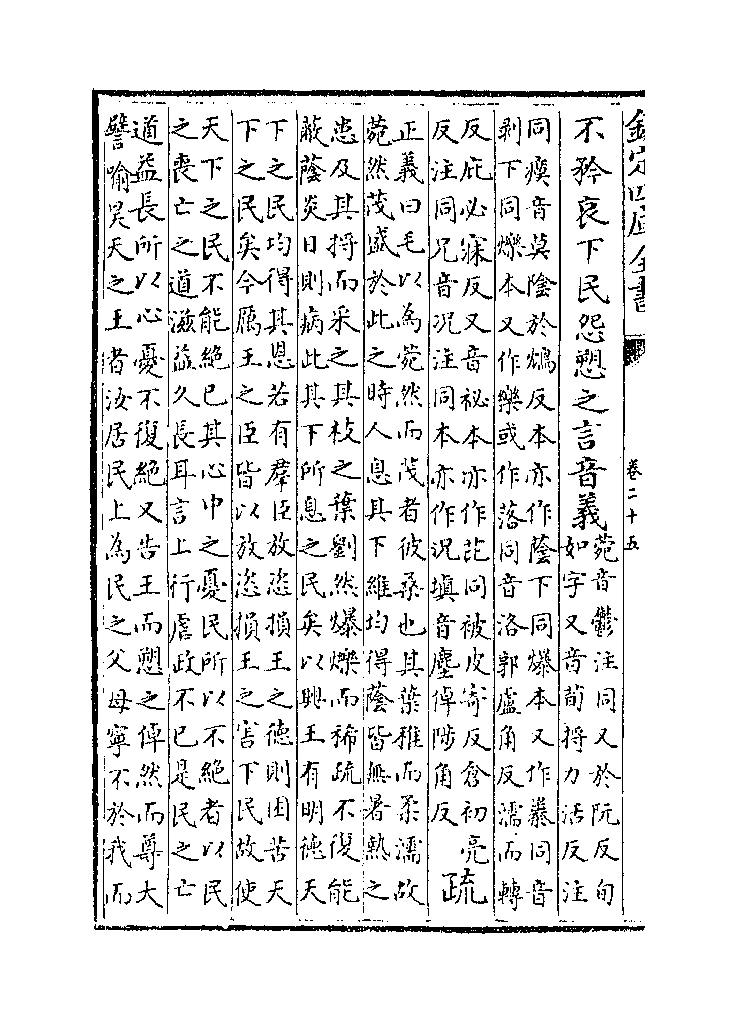 欽定四庫全書
卷二十五
不矜哀下民怨愬之言音義
菀音鬱注同又於阮反旬
如字又音荀捋力活反注
同瘼音莫陰於鴆反本亦作蔭下同爆本又作㬥同音
剥下同爍本又作樂或作落同音洛郭盧角反濡而轉
反庇必寐反又音祕本亦作芘同被皮寄反倉初亮
反注同兄音况注同本亦作况填音塵倬陟角反
疏
正義曰毛以為菀然而茂者彼桑也其葉稚而柔濡故
菀然茂盛於此之時人息其下維均得蔭皆無暑熱之
患及其捋而采之其枝之葉劉然爆爍而稀疏不復能
蔽蔭炎日則病此其下所息之民矣以興王有明德天
下之民均得其恩若有羣臣放恣損王之德則困苦天
下之民矣今厲王之臣皆以放恣損王之害下民故使
天下之民不能絶已其心中之憂民所以不絶者以民
之喪亡之道滋益久長耳言上行虐政不已是民之亡
道益長所以心憂不復絶又告王而愬之倬然而尊大
譬喻昊天之王者汝居民上為民之父母寧不於我而